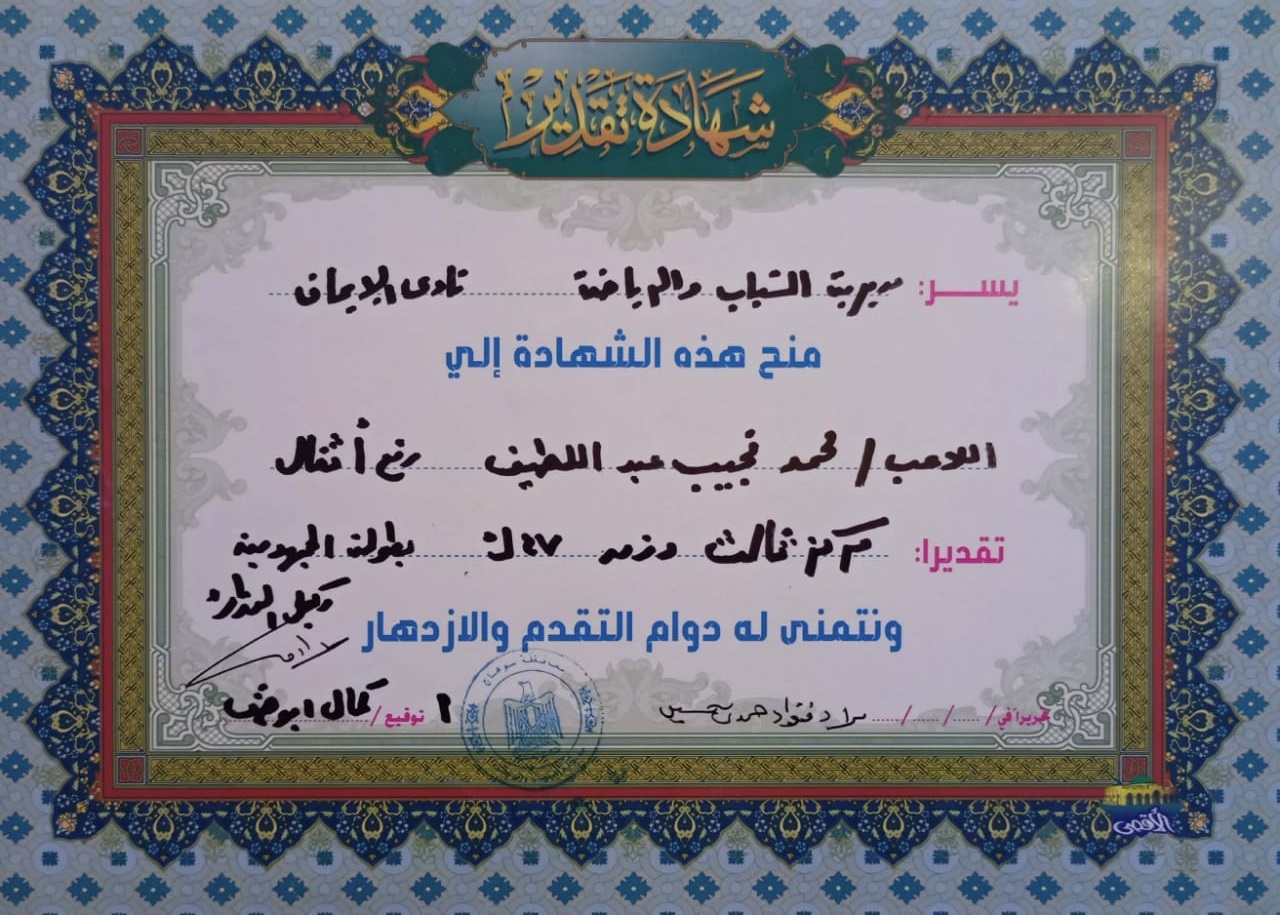 شهادة تقدير
يسر: مديرية الشباب والرياضة نادى الإيمان
منح هذه الشهادة إلي
اللاعب / محمد نجيب عبد اللطيف رفع أثقال
تقديرا: مركز ثالث وزن ٦٧ ك بطولة الجمهورية
وكيل الوزارة
ونتمنى له دوام التقدم والازدهار
تحريرا في / / / مراد فؤاد
توقيع / كمال ابو ضيف
محافظة سوهاج
الأقصى